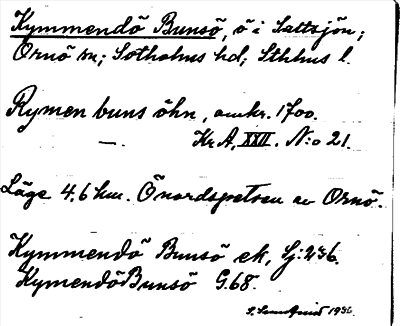 Kymmendö Bunsö, ö i Saltsjön;
Ornö sn; Sotholms hd; Sthlms l.
Kymen buns öhn, omkr. 1700.
— Kr A, XXII. N:o 21.
Läge 4,6 km. Ö nordspetsen av Ornö.
Kymmendö Bunsö ek, Sj:236.
KymendöBunsö G.68.
1936.